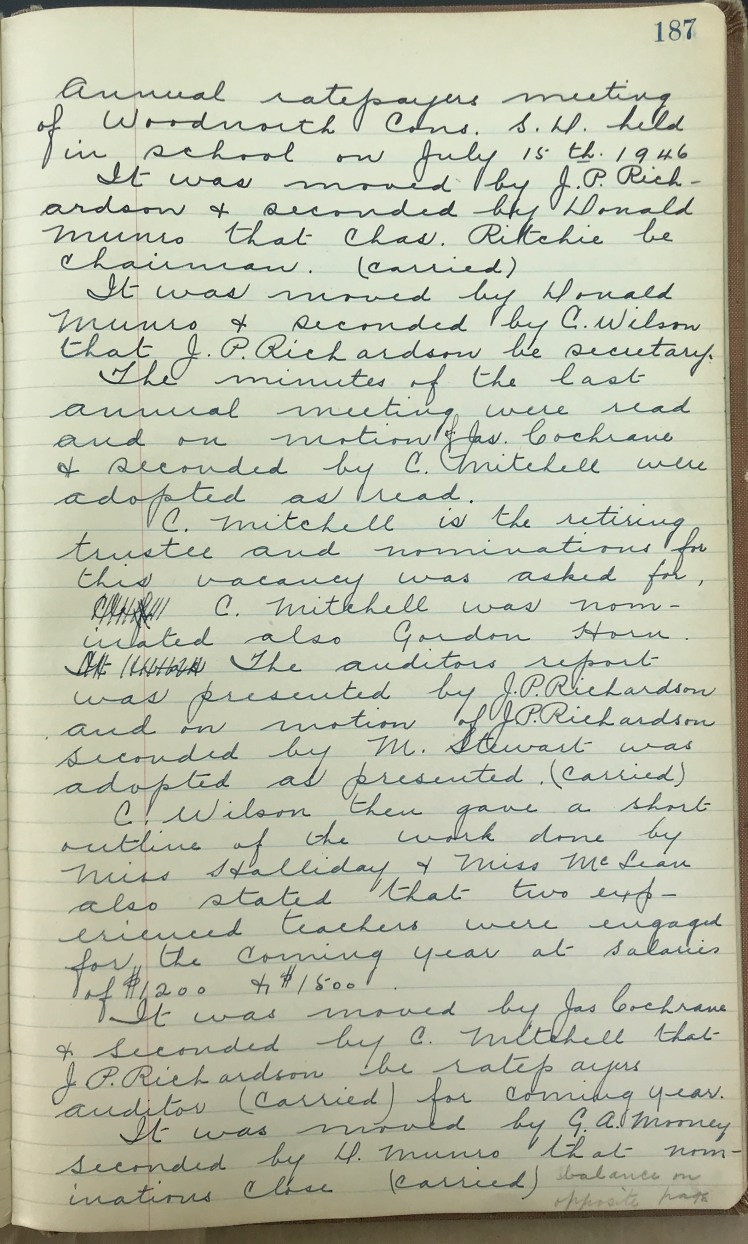 187
Annual ratepayers meeting
of Woodnorth Cons. S.D. held
in school on July 15 th. 1946
It was moved by J.P. Rich-
ardson & seconded by Donald
Munro that Chas. Ritchie be
chairman. (carried)
It was moved by Donald
Munro & seconded by C. Wilson
that J.P. Richardson be secretary.
The minutes of the last
annual meeting were read
and on motion of Jas. Cochrane
& seconded by C. Mitchell were
adopted as read.
C. Mitchell is the retiring
trustee and nominations for
this vacancy was asked for,
C. Mitchell was nom-
inated also Gordon Horn.
The auditors report
was presented by J.P. Richardson
and on motion of J.P. Richardson
seconded by M. Stewart was
adopted as presented. (carried)
C. Wilson then gave a short
outline of the work done by
Miss Halliday & Miss McLean
also stated that two exp-
erienced teachers were engaged
for the coming year at salaries
of $1200 & $1500.
It was moved by Jas Cochrane
& seconded by C. Mitchell that
J P. Richardson be ratepayers
auditor (carried) for coming year.
It was moved by G.A. Mooney
seconded by D. Munro that nom-
inations close (carried)
balance on
opposite page